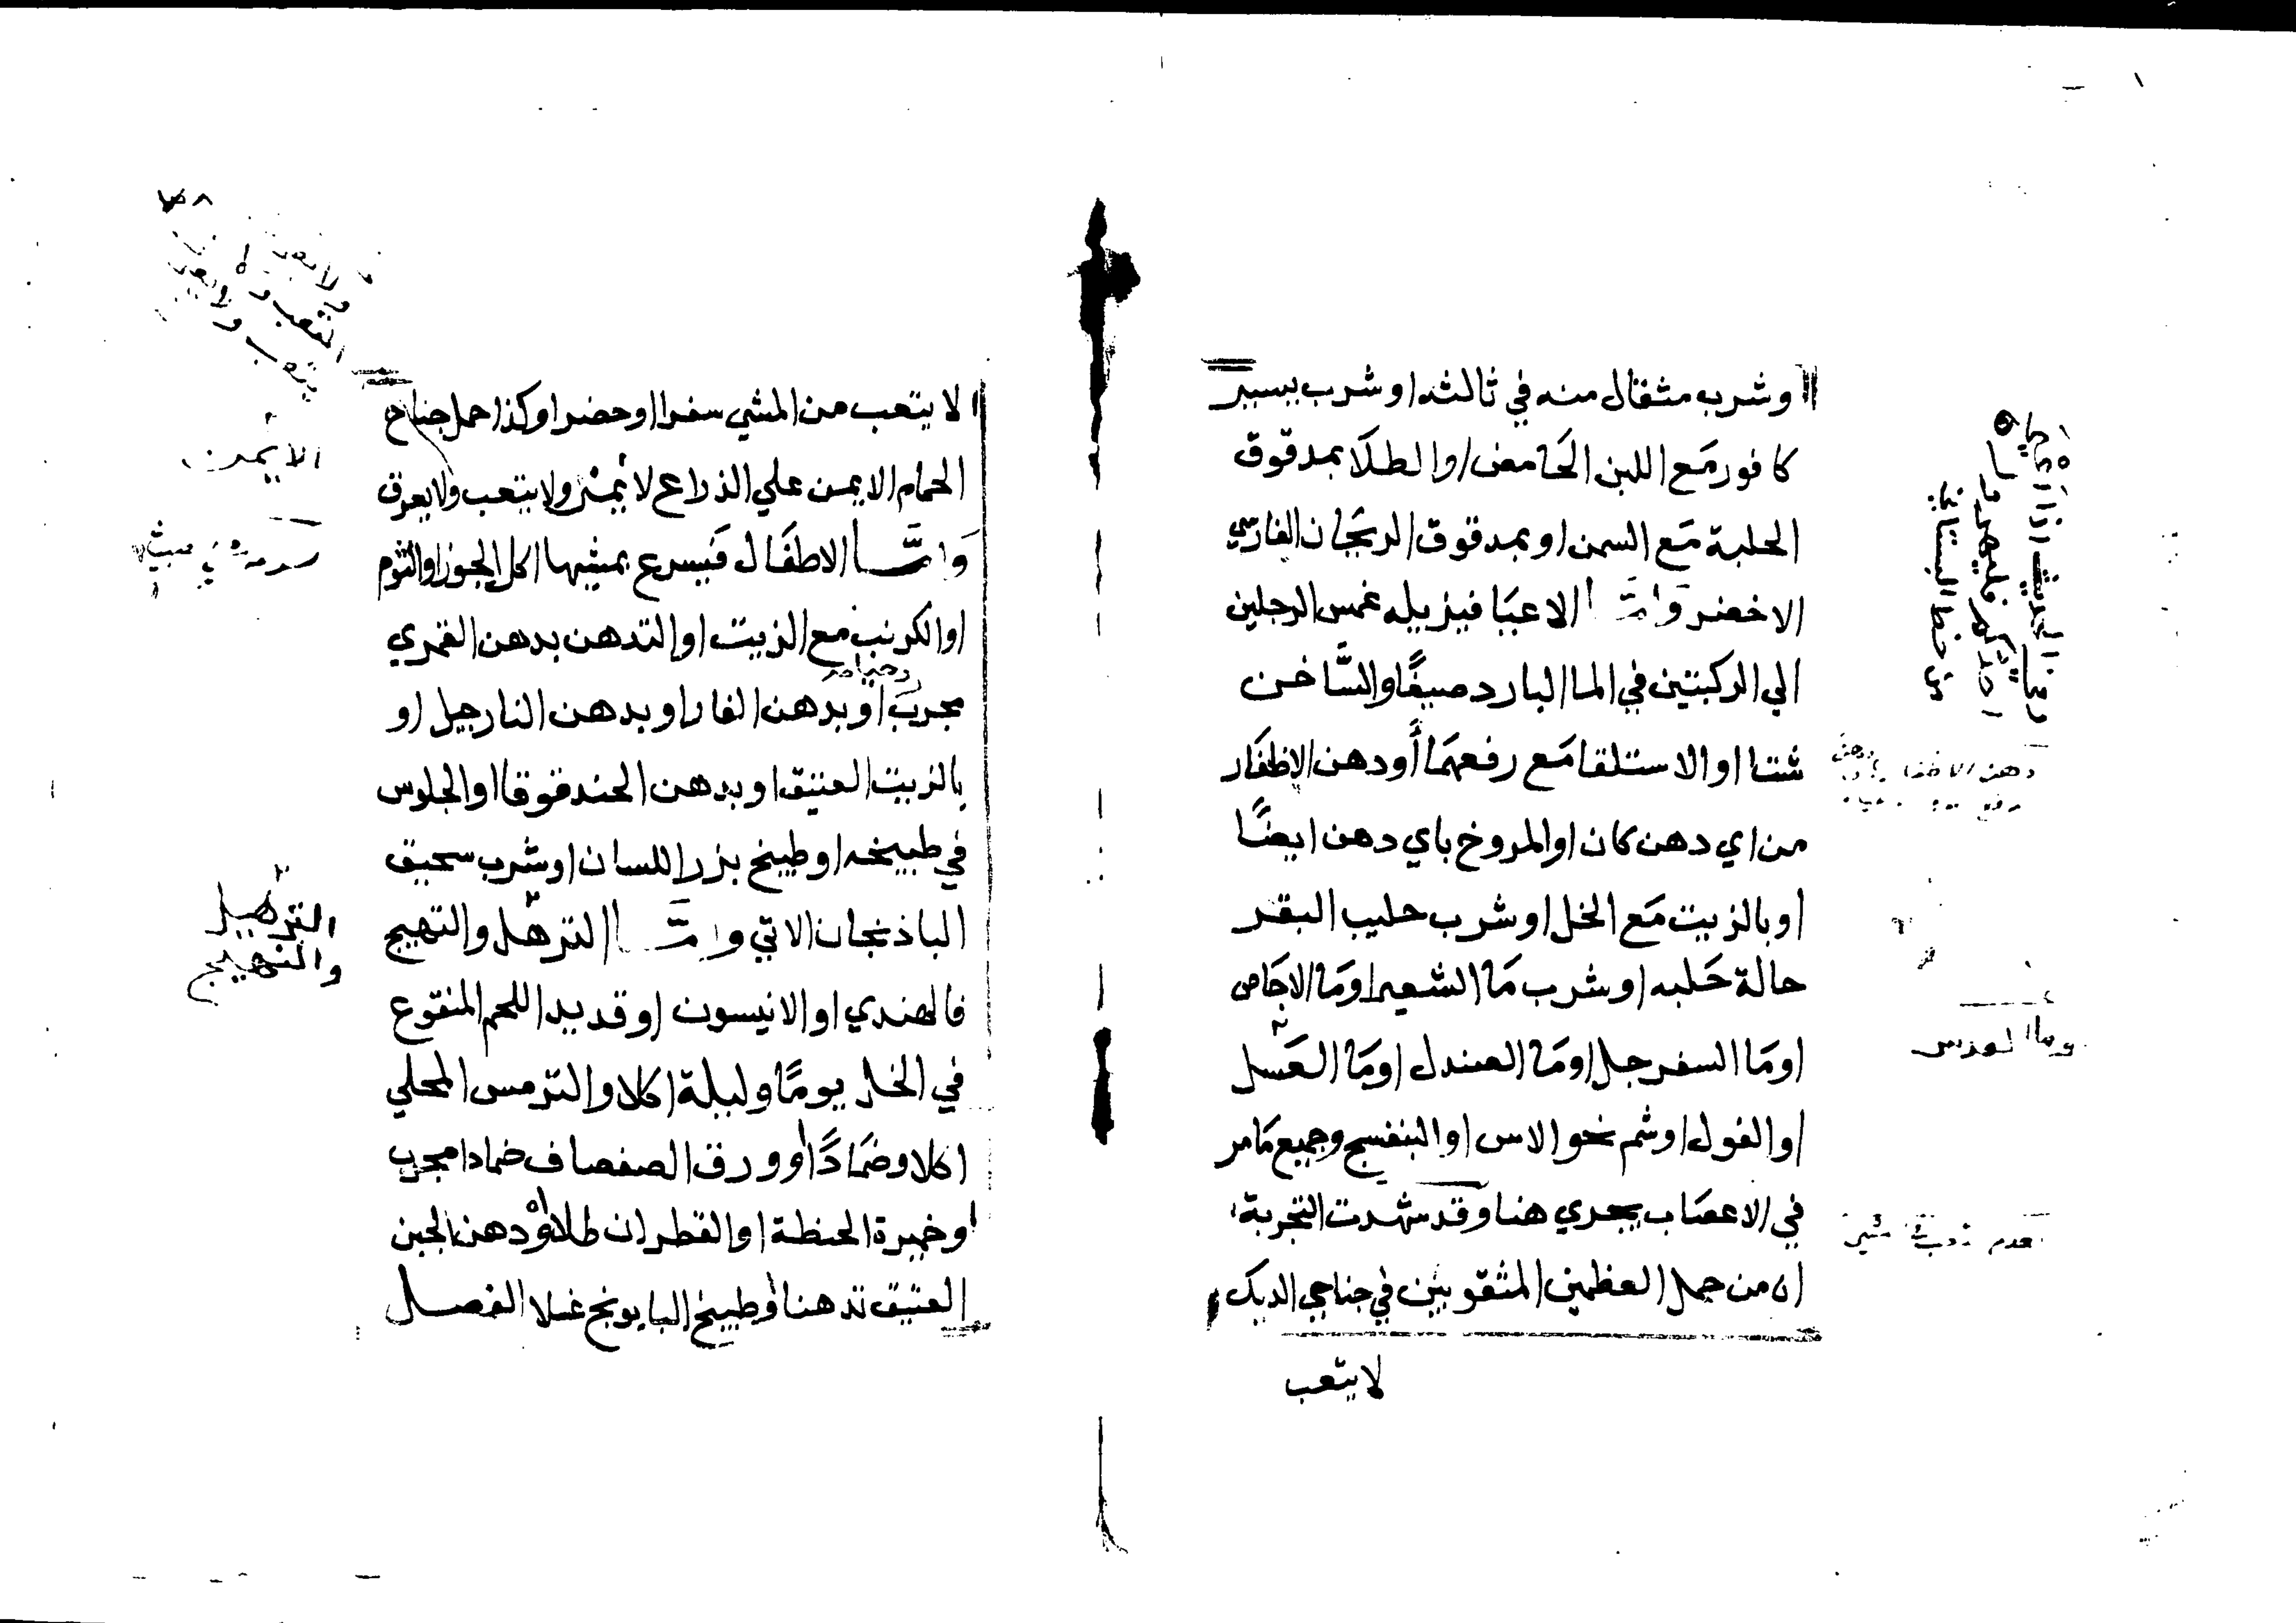 وشرب مثقال منه في ثالثه او شرب يسير
كافور مَع اللبن الحَامض او الطلَا بمدقوق
الحلبة مَع السمن او بمدقوق الريحَان الفارسي
الاخضر وَامَّا الاعيَا فيزيله غمس الرجلين
الي الركبتين في الما البارد صيفًا والسَّاخن
شتا او الاستلقا مَع رفعهمَا أو دهن الاظفَار
من اي دهن كان او المروخ باي دهن ايضًا
او بالزيت مَع الخل او شرب حليب البقر
حالة حَلبه او شرب مَا الشعير او مَا الاجَاص
او مَا السفرجل او مَا الصندل او مَا العَسل
او الفول او شم نحو الاس او البنفسج وجميع مَا مر
في الاعصَاب يجري هنا وقد شهدت التجربة
ان من حمل العظمين المثقوبين في جناحي الديك
لايتعب
وما العدس
لا يتعب من المشي سفرا او حضرا وكذا حمل جناح
الحمام الايمن علي الذراع لا يمشي ولا يتعب ولا يعرق
وَامَّا الاطفَال فَيسرع بمشيها اكل الجوز او الثوم
او الكرنب مع الزيت او التدهن بدهن القمري
مجرب او بدهن الفار او بدهن النارجيل او
بالزيت العتيق او بدهن الحندقوقا او الجلوس
في طبيخه او طبيخ بزر اللسان او شرب سحيق
الباذنجان الاتي وامَّا الترهّل والتهيج
فالهندي او الانيسون او قديد اللحم المنقوع
في الخل يومًا وليلة اكلا والترمس المحلي
اكلا وضمَادًا او ورق الصفصاف ضمادا مجرب
او خميرة الحنطة او القطران طلا او دهن الجبن
العتيق تدهنا او طبيخ البابونج غسلا الفصل
الايمن
الترهيل
والتهيج